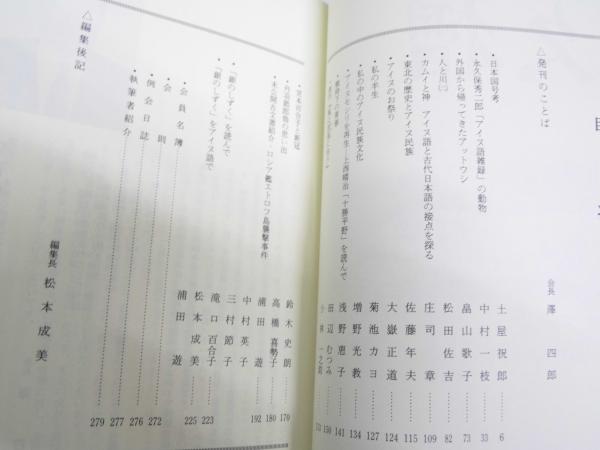 目
△発刊のことば
会長 澤 四郎
・日本国号考
土屋祝郎 6
・永久保秀二郎「アイヌ語雑録」の動物
中村一枝 33
・外国から帰ってきたアットウシ
畠山歌子 73
・人と川㈡
松田佐吉 82
・カムイと神 アイヌ語と古代日本語の接点を探る
庄司 章 109
・東北の歴史とアイヌ民族
佐藤年夫 115
・アイヌのお祭り
大嶽正道 124
・私の半生
菊池カヨ 127
・私の中のアイヌ民族文化
増野光教 134
・アイヌモシリを再生―上西晴治「十勝平野」を読んで
浅野恵子 141
田辺むつみ 150
鈴木史朗 170
高橋喜勢子 180
・未公開古文書紹介・ロシア艦エトロフ島襲撃事件
浦田 遊 192
中村英子
・「銀のしずく」を読んで
三村節子
滝口百合子 223
・「銀のしずく」をアイヌ語で
松本成美 225
浦田 遊
・会員名簿 272
・会則 276
・例会日誌 277
・執筆者紹介 279
△編集後記
編集長 松本成美